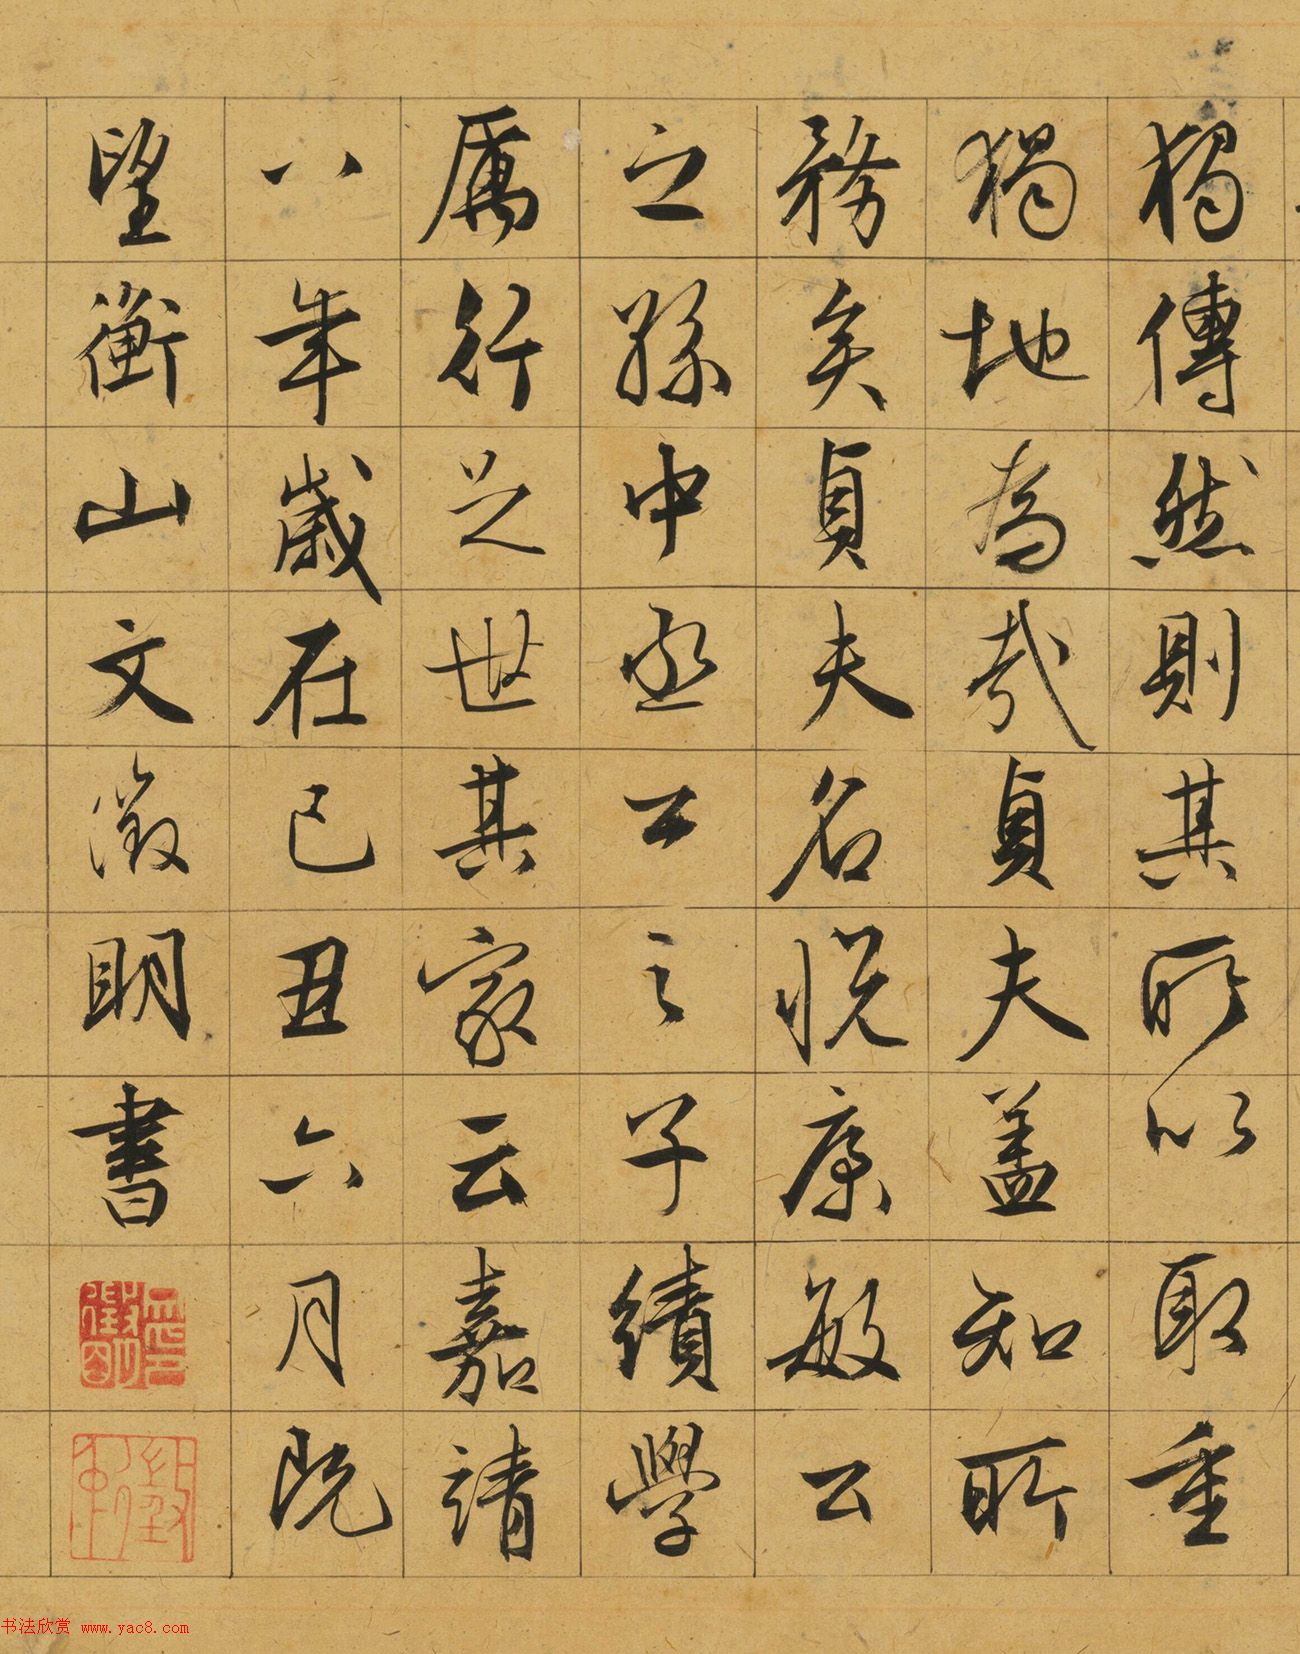 獨傳然則其所以取重
獨地為哉貞夫盖知所
務矣貞夫名悦康敏公
之孫中丞公之子績學
厲行足世其家云嘉靖
八年歲在己丑六月既
望衡山文徵明書
书法欣赏 www.yac8.com